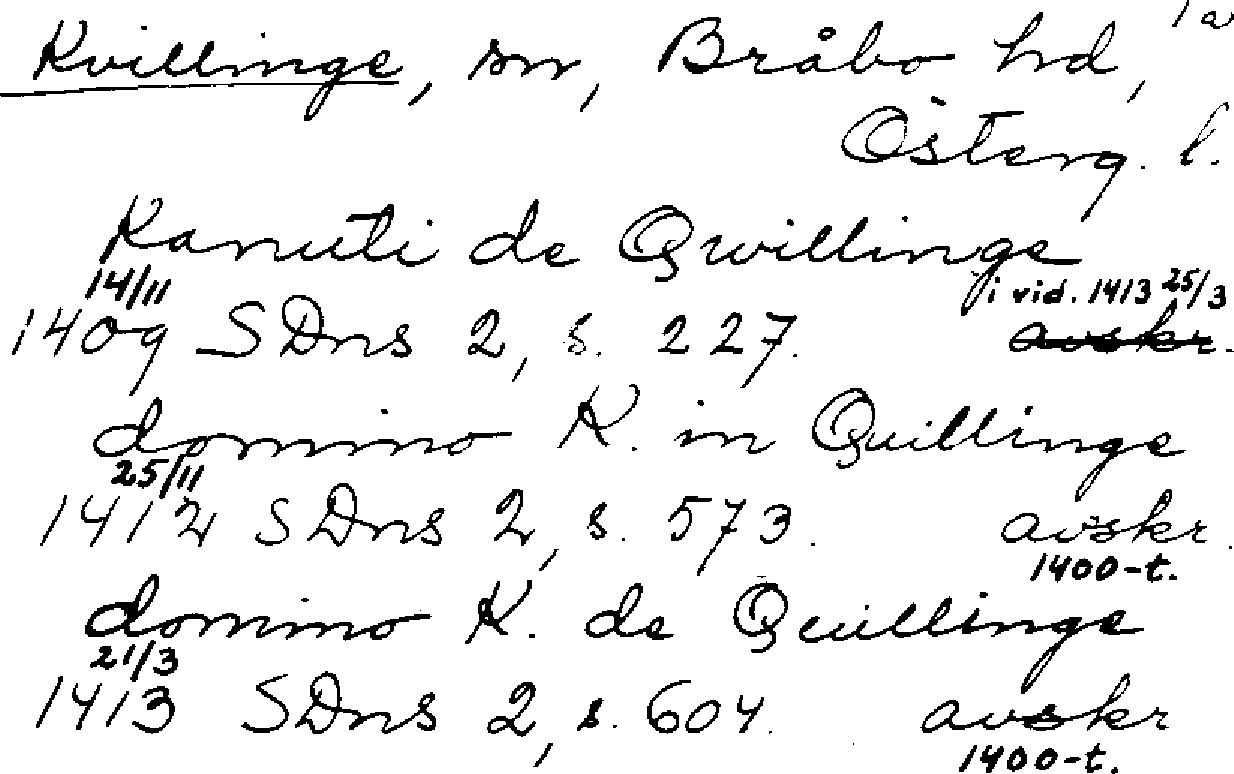 Kvillinge, sn, Bråbo hd, 1a
Österg. l.
Kanuti de Qwillinge
14/11 i vid. 1413 25/3
1409 SDns 2, s. 227. avskr.
domino K. in Quillinge
25/11
1412 SDns 2, s. 573. avskr.
1400-t.
domino K. de Quillinge
21/3
1413 SDns 2, s. 604. avskr
1400-t.